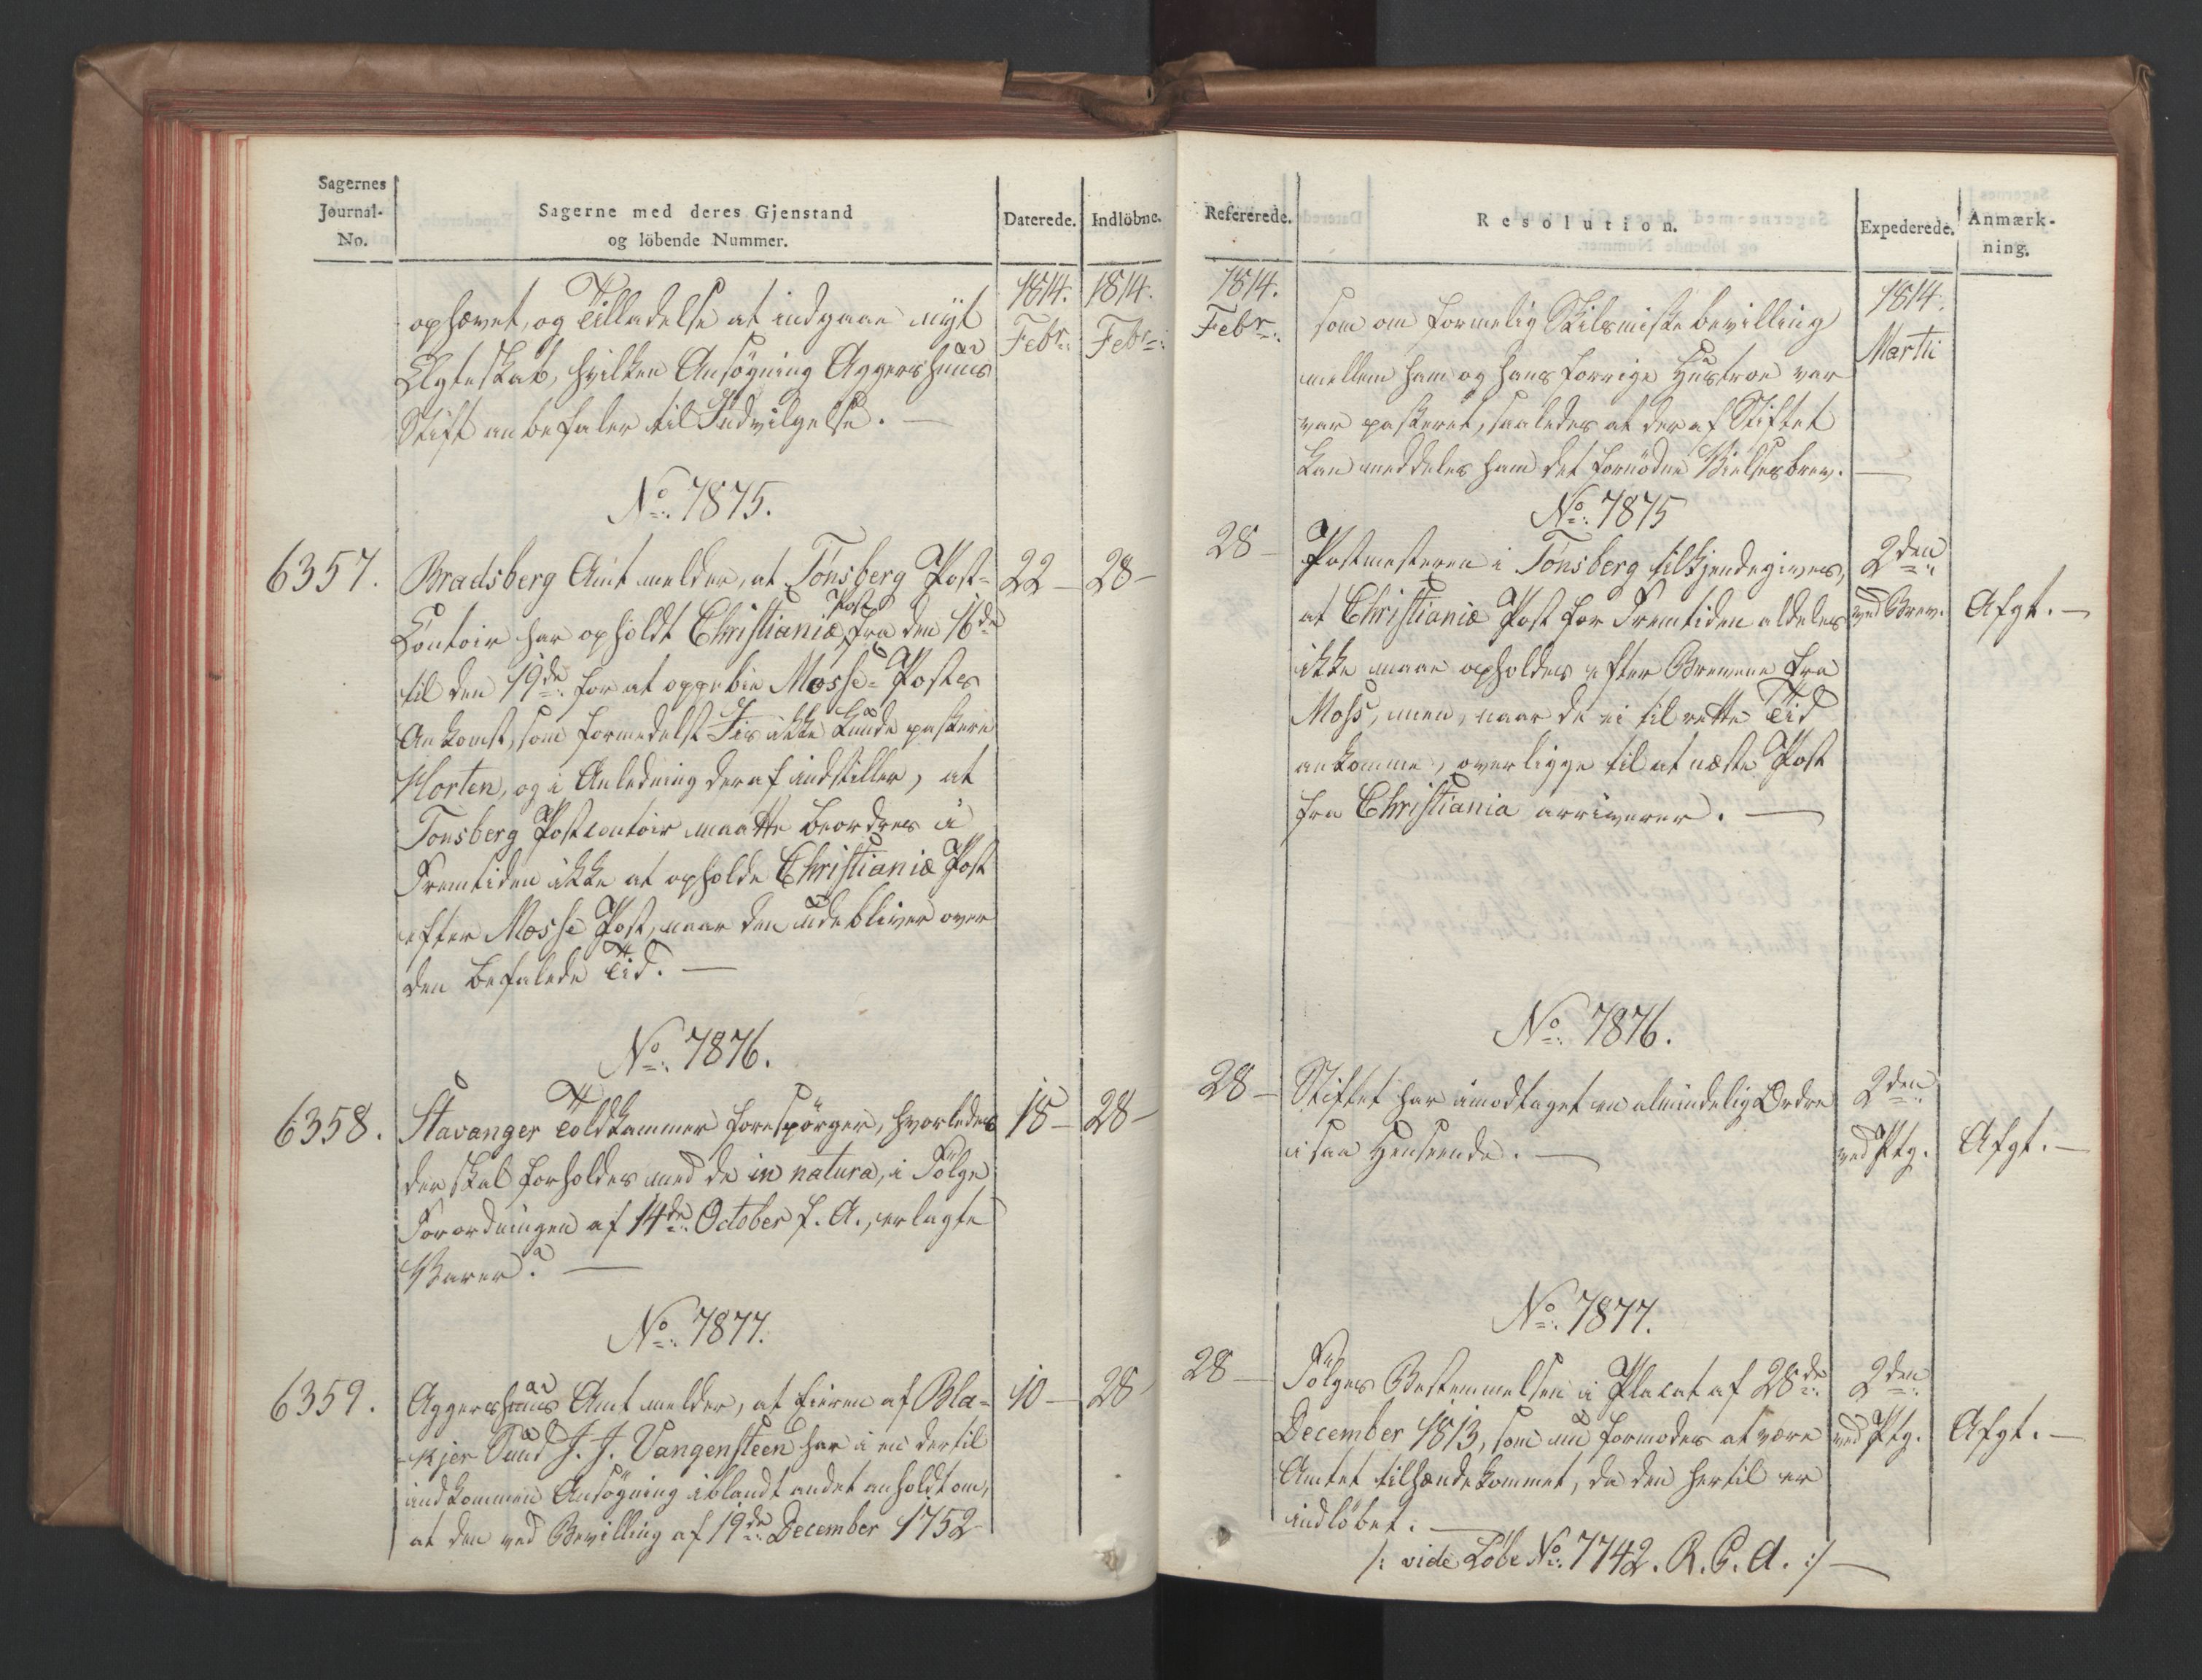 Sagernes
Journal-
No.
Sagerne med deres Gjenstand
og löbende Nummer.
Daterede.
Indlöbne.
1814.
Febr:
1814.
Febr:
ophævet, og Tilladelse at indgaae nyt
Ægteskab, hvilken Ansøgning Aggershuus
Stift anbefaler til Indvilgelse. —
No: 7875.
6357.
Bradsberg Amt melder, at Tönsberg Post-
22 —
28 —
Contoir har opholdt Christianiæ Post fra den 16de
til den 19de: for at oppebie Mosse-Postes
Ankomst, som formedelst Iis ikke kunde passere
Horten, og i Anledning deraf indstiller, at
Tonsberg Postcontoir maatte beordres i
Fremtiden ikke at opholde Christianiæ Post
efter Mosse Post, naar den udebliver over
den befalede Tid. —
No: 7876.
6358.
Stavanger Toldkammer forespörger, hvorledes
18 —
28 —
der skal forholdes med de in natura, i Fölge
Forordningen af 14de: October f. A., erlagte
Varer? —
No: 7877.
6359.
Aggershuus Amt melder, at Eieren af Bla-
10 —
28 -
kjer Sund J. J. Vangensteen har i en dertil
indkommen Ansögning iblandt andet anholdt om,
at den ved Bevilling af 19de: December 1752
Refererede.
Resolution.
Expederede.
Anmærk-
ning.
1814.
Febr:
1814.
Martii
som om formelig Skilsmisse bevilling
mellem ham og hans forrige Hustroe var
var passeret, saaledes at der af Stiftet
kan meddeles ham det fornödne Vielsesbrev. —
No: 7875
28 —
Postmesteren i Tönsberg tilkjendegives,
2den:
at Christianiæ Post for Fremtiden aldeles
ved Brev.
Afgt. —
ikke maae opholdes efter Brevene fra
Moss, men, naar de ei til rette Tid
ankomme, overligge til at næste Post
fra Christiania arriverer. —
No: 7876.
28 —
Stiftet har imodtaget en almindelig Ordre
2den:
i saa Henseende. —
ved Ptg.
Afgt. —
No: 7877.
28 —
Fölges Bestemmelsen i Placat af 28de:
2den:
December 1813, som nu formodes at være
ved Ptg.
Afgt. —
Amtet tilhændekommet, da den hertil er
indløbet. —
/: vide Löbe No: 7742. R. C. A. :/ —